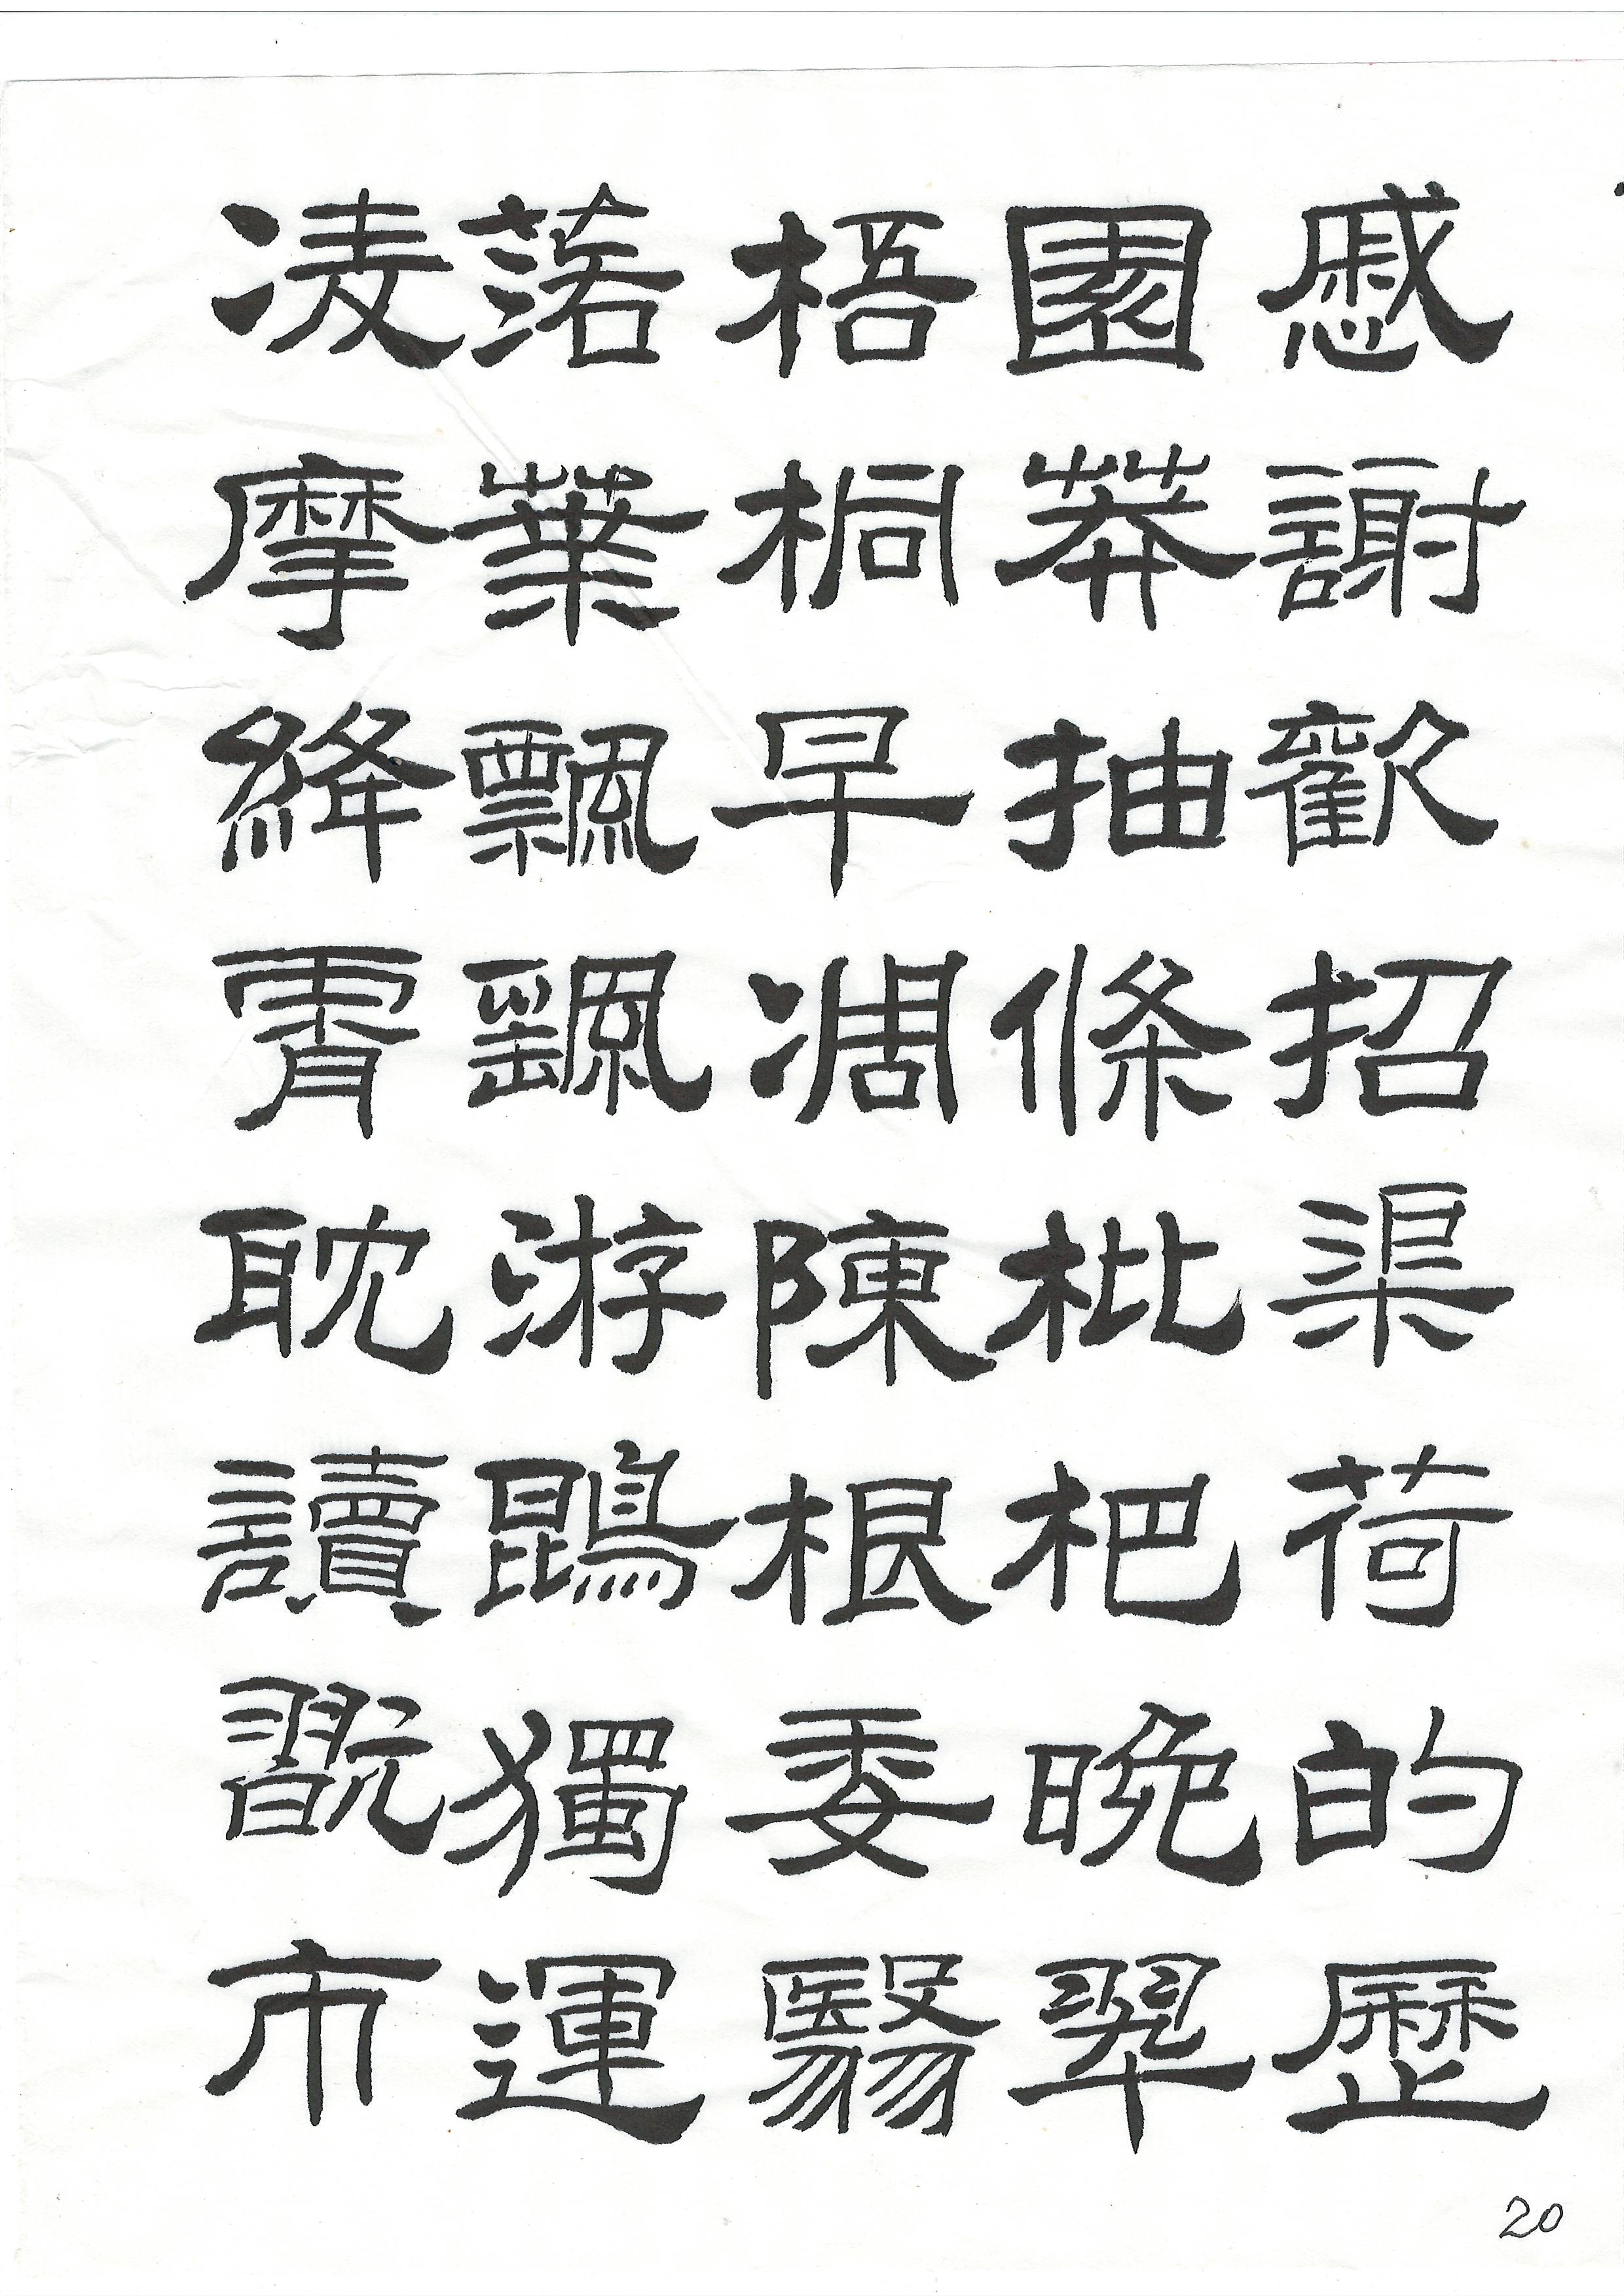 慼謝歡招渠荷的歷
園莽抽條枇杷晚翠
梧桐早凋陳根委翳
落葉飄颻游鵾獨運
凌摩絳霄耽讀翫市
20